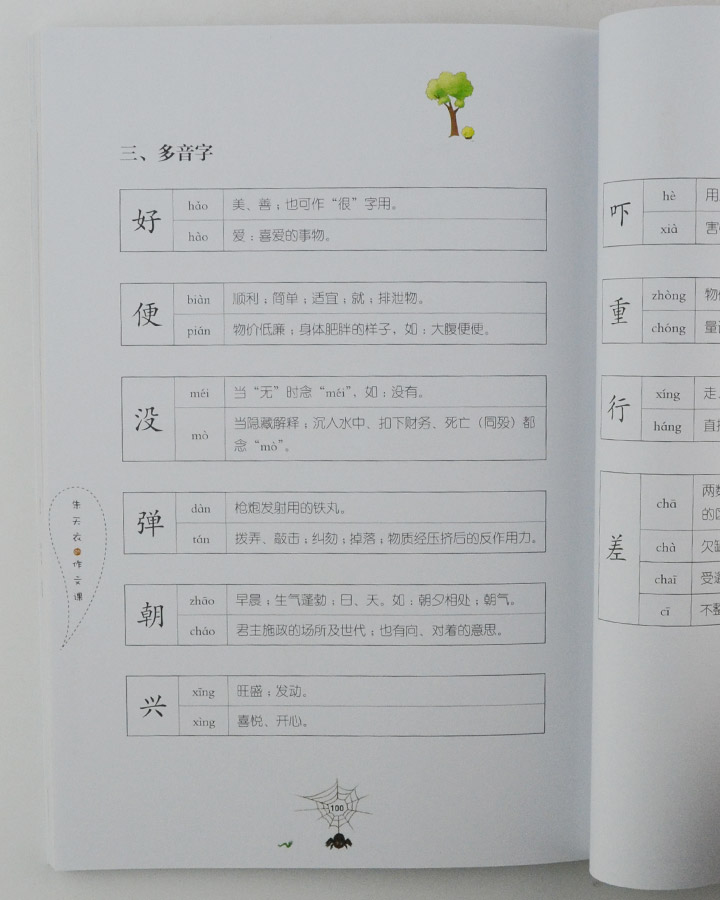 三、多音字
好
hǎo 美、善；也可作“很”字用。
hào 爱：喜爱的事物。
便
biàn 顺利；简单；适宜；就；排泄物。
pián 物价低廉；身体肥胖的样子，如：大腹便便。
没
méi 当“无”时念“méi”，如：没有。
mò 当隐藏解释；沉入水中、扣下财务、死亡（同殁）都
念“mò”。
弹
dàn 枪炮发射用的铁丸。
tán 拨弄、敲击；纠刻；掉落；物质经压挤后的反作用力。
朝
zhāo 早晨；生气蓬勃；日、天。如：朝夕相处；朝气。
cháo 君主施政的场所及世代；也有向、对着的意思。
兴
xīng 旺盛；发动。
xìng 喜悦、开心。
朱天衣的作文课
100
吓
hè 用
xià 害
重
zhòng 物
chóng 量
行
xíng 走
háng 直
差
chā 两数
的
chà 欠缺
chaī 受
cī 不整